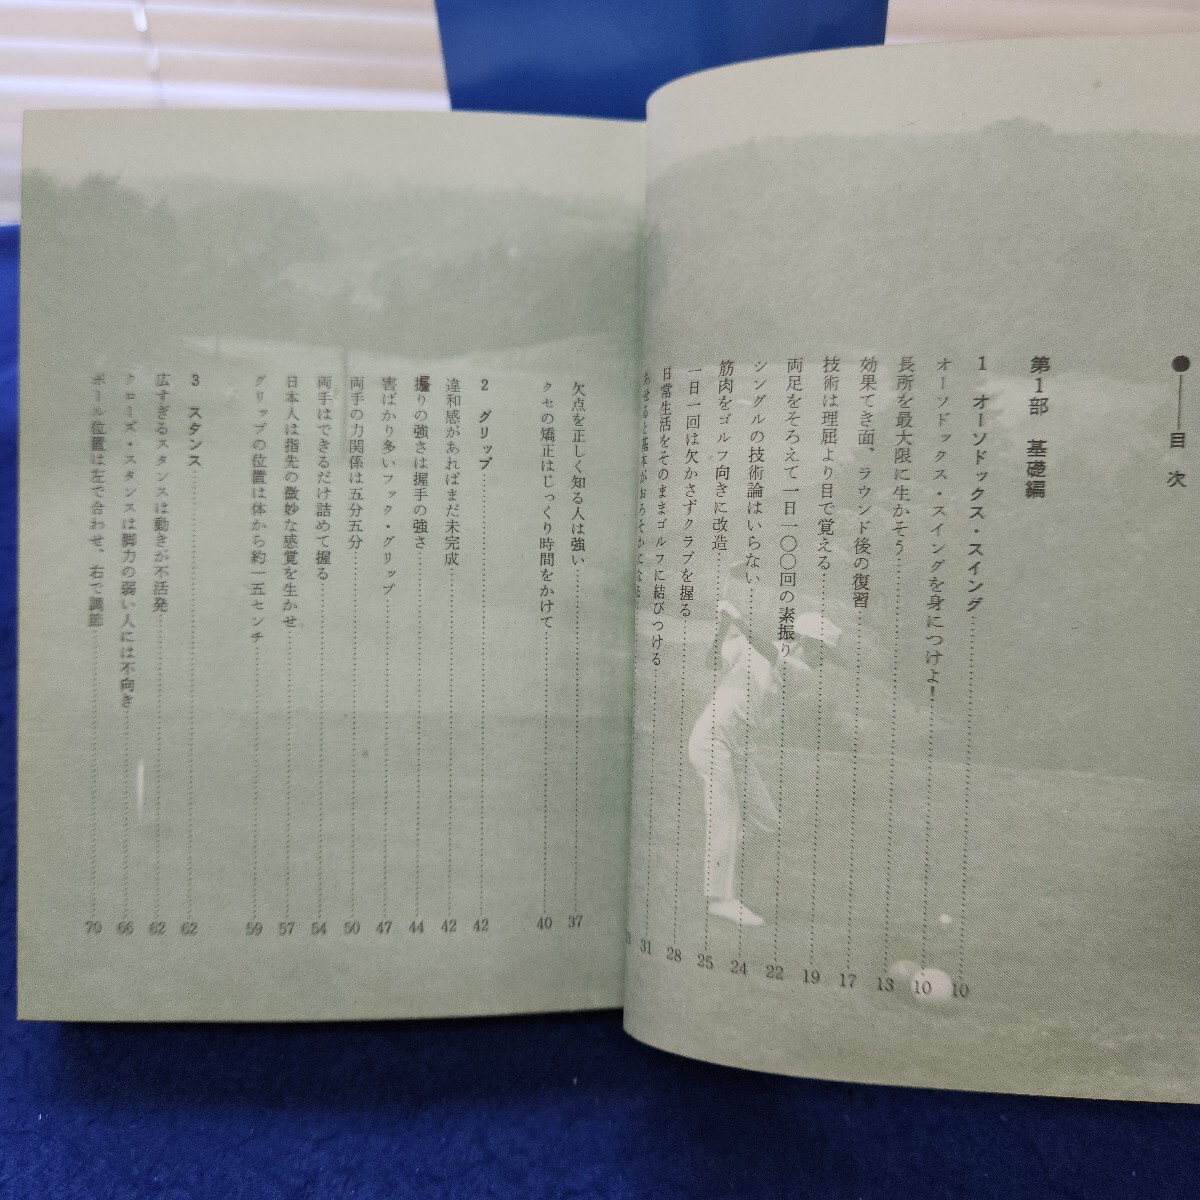 ●――目次
第1部 基礎編
1 オーソドックス・スイング…………10
オーソドックス・スイングを身につけよ！…………10
長所を最大限に生かそう…………13
効果てき面、ラウンド後の復習…………17
技術は理屈より目で覚える…………19
両足をそろえて一日一〇〇回の素振り…………22
シングルの技術論はいらない…………24
筋肉をゴルフ向きに改造…………25
一日一回は欠かさずクラブを握る…………28
日常生活をそのままゴルフに結びつける…………31
あせると基本がおろそかになる…………
欠点を正しく知る人は強い…………37
クセの矯正はじっくり時間をかけて…………40
2 グリップ…………42
違和感があればまだ未完成…………42
握りの強さは握手の強さ…………44
害ばかり多いフック・グリップ…………47
両手の力関係は五分五分…………50
両手はできるだけ詰めて握る…………54
日本人は指先の微妙な感覚を生かせ…………57
グリップの位置は体から約一五センチ…………59
3 スタンス…………62
広すぎるスタンスは動きが不活発…………62
クローズ・スタンスは脚力の弱い人には不向き…………66
ボール位置は左で合わせ、右で調節…………70